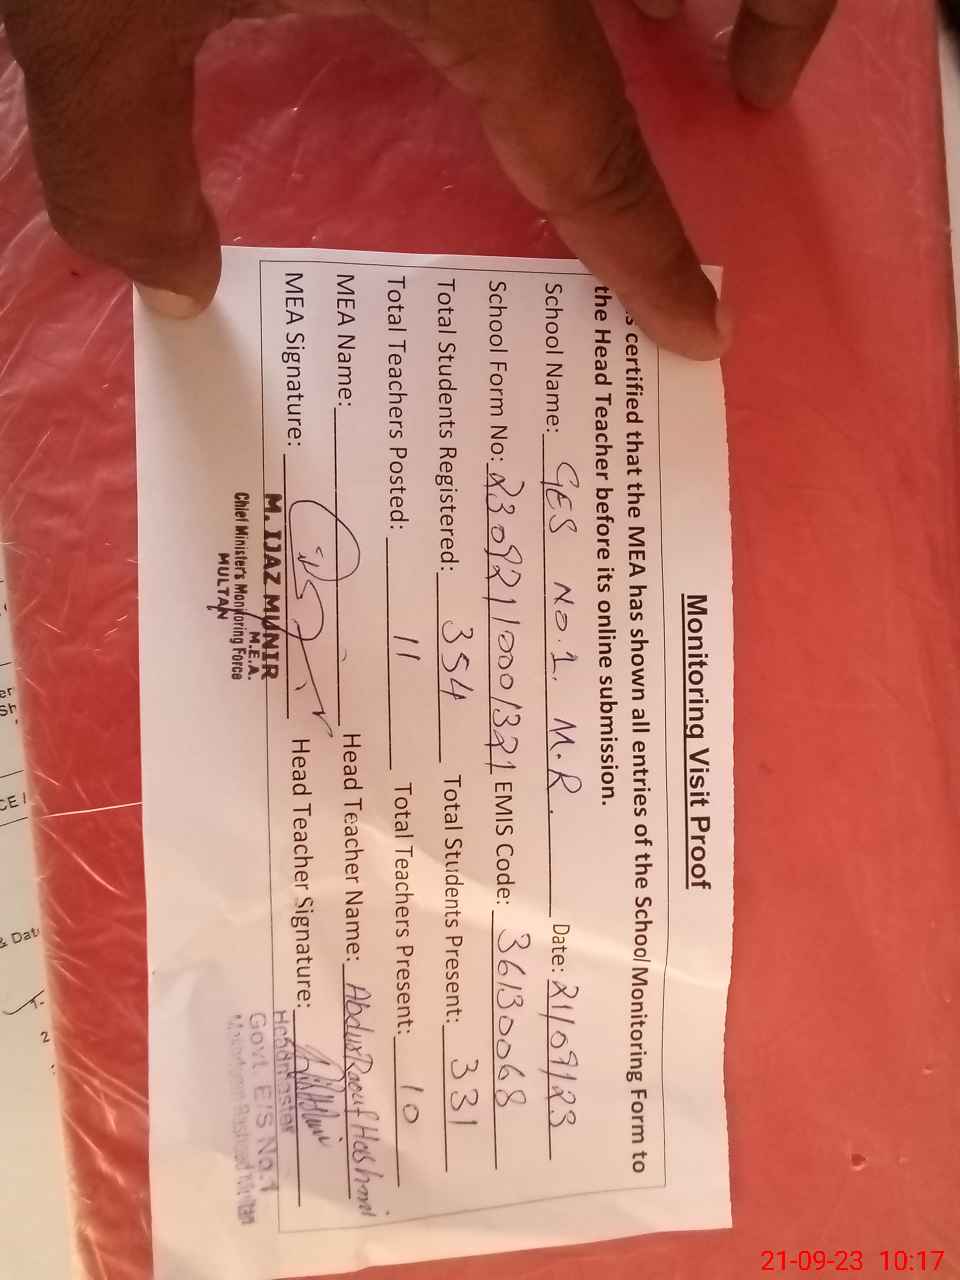 Monitoring Visit Proof
certified that the MEA has shown all entries of the School Monitoring Form to
the Head Teacher before its online submission.
School Name: GES No.1. M.R. Date: 21/09/23
School Form No: 2309210001321 EMIS Code: 36130068
Total Students Registered: 354 Total Students Present: 331
Total Teachers Posted: 11 Total Teachers Present: 10
MEA Name: Head Teacher Name: Abdur Raouf Hashmi
MEA Signature: Head Teacher Signature:
M. IJAZ MUNIR
M.E.A.
Chief Minister's Monitoring Force
MULTAN
Headmaster
Govt. E/S No.1
21-09-23 10:17